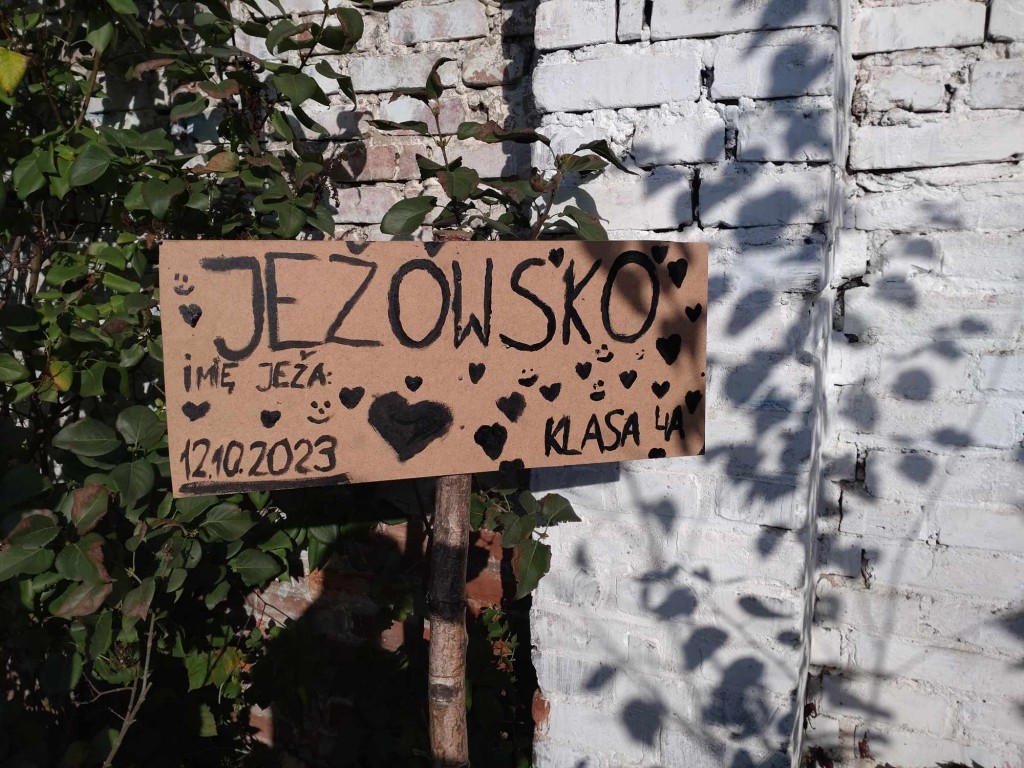 JEŻOWSKO
iMIĘ JEŻA:
KLASA 4A
12.10.2023